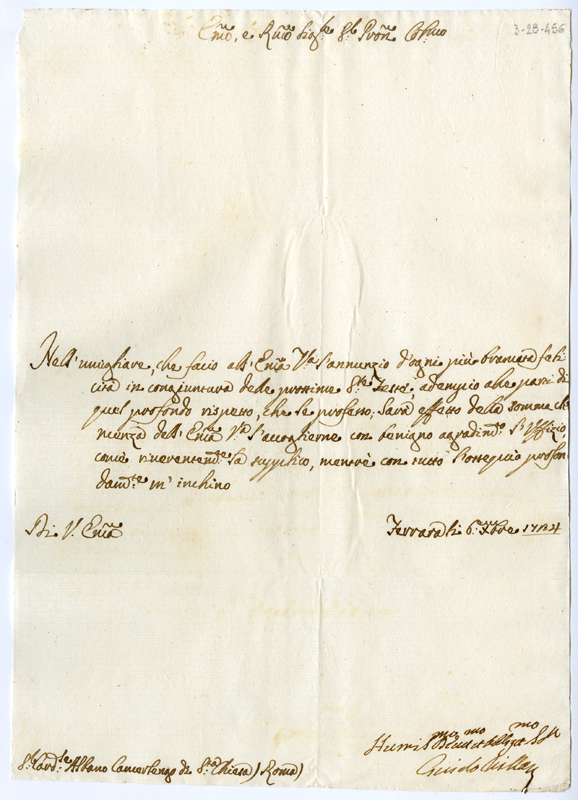 3-28-456
Em̃o, e Rm̃o Sig.re S.r Pron̄e Col.mo
Nell'umigliare, che facio all'Em̃a V.a l'annunzio d'ogni più bramata feli
cità in congiuntura delle prossime S.te Feste, adempio alle parti di
quel profondo rispetto, che le professo; sarà effetto della somma cle
menza dell'Em̃a V.a l'accoglierne con benigno agradim.to l'uffizio,
come riverentem.te la supplico, mentre con tutto l'ossequio profon
dam.te m'inchino
Di V. Em̃a
Ferrara li 6. Xbre 1724
Humil.mo Devot.mo Oblig.mo
Guido
S.r Card.le Albano Camerlengo di S.ta Chiesa) Roma)